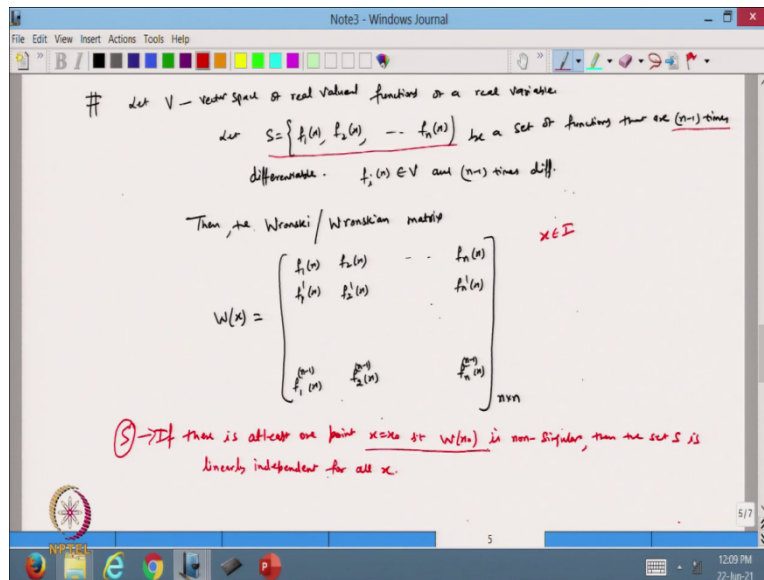 Note3 - Windows Journal
File Edit View Insert Actions Tools Help
# Let V – vector space of real valued functions of a real variable.
Let S = {f₁(x), f₂(x), -- fₙ(x)} be a set of functions that are (n-1) times
differentiable. fⱼ(x) ∈ V and (n-1) times diff.
Then, the Wronski/Wronskian matrix
x ∈ I
f₁(x) f₂(x) -- fₙ(x)
f₁'(x) f₂'(x) fₙ'(x)
W(x) =
f₁⁽ⁿ⁻¹⁾(x) f₂⁽ⁿ⁻¹⁾(x) fₙ⁽ⁿ⁻¹⁾(x)
n×n
(S) → If there is atleast one point x=x₀ st W(x₀) is non-singular, then the set S is
linearly independent for all x.
5/7
5
NPTEL
12:09 PM
22-Jun-21